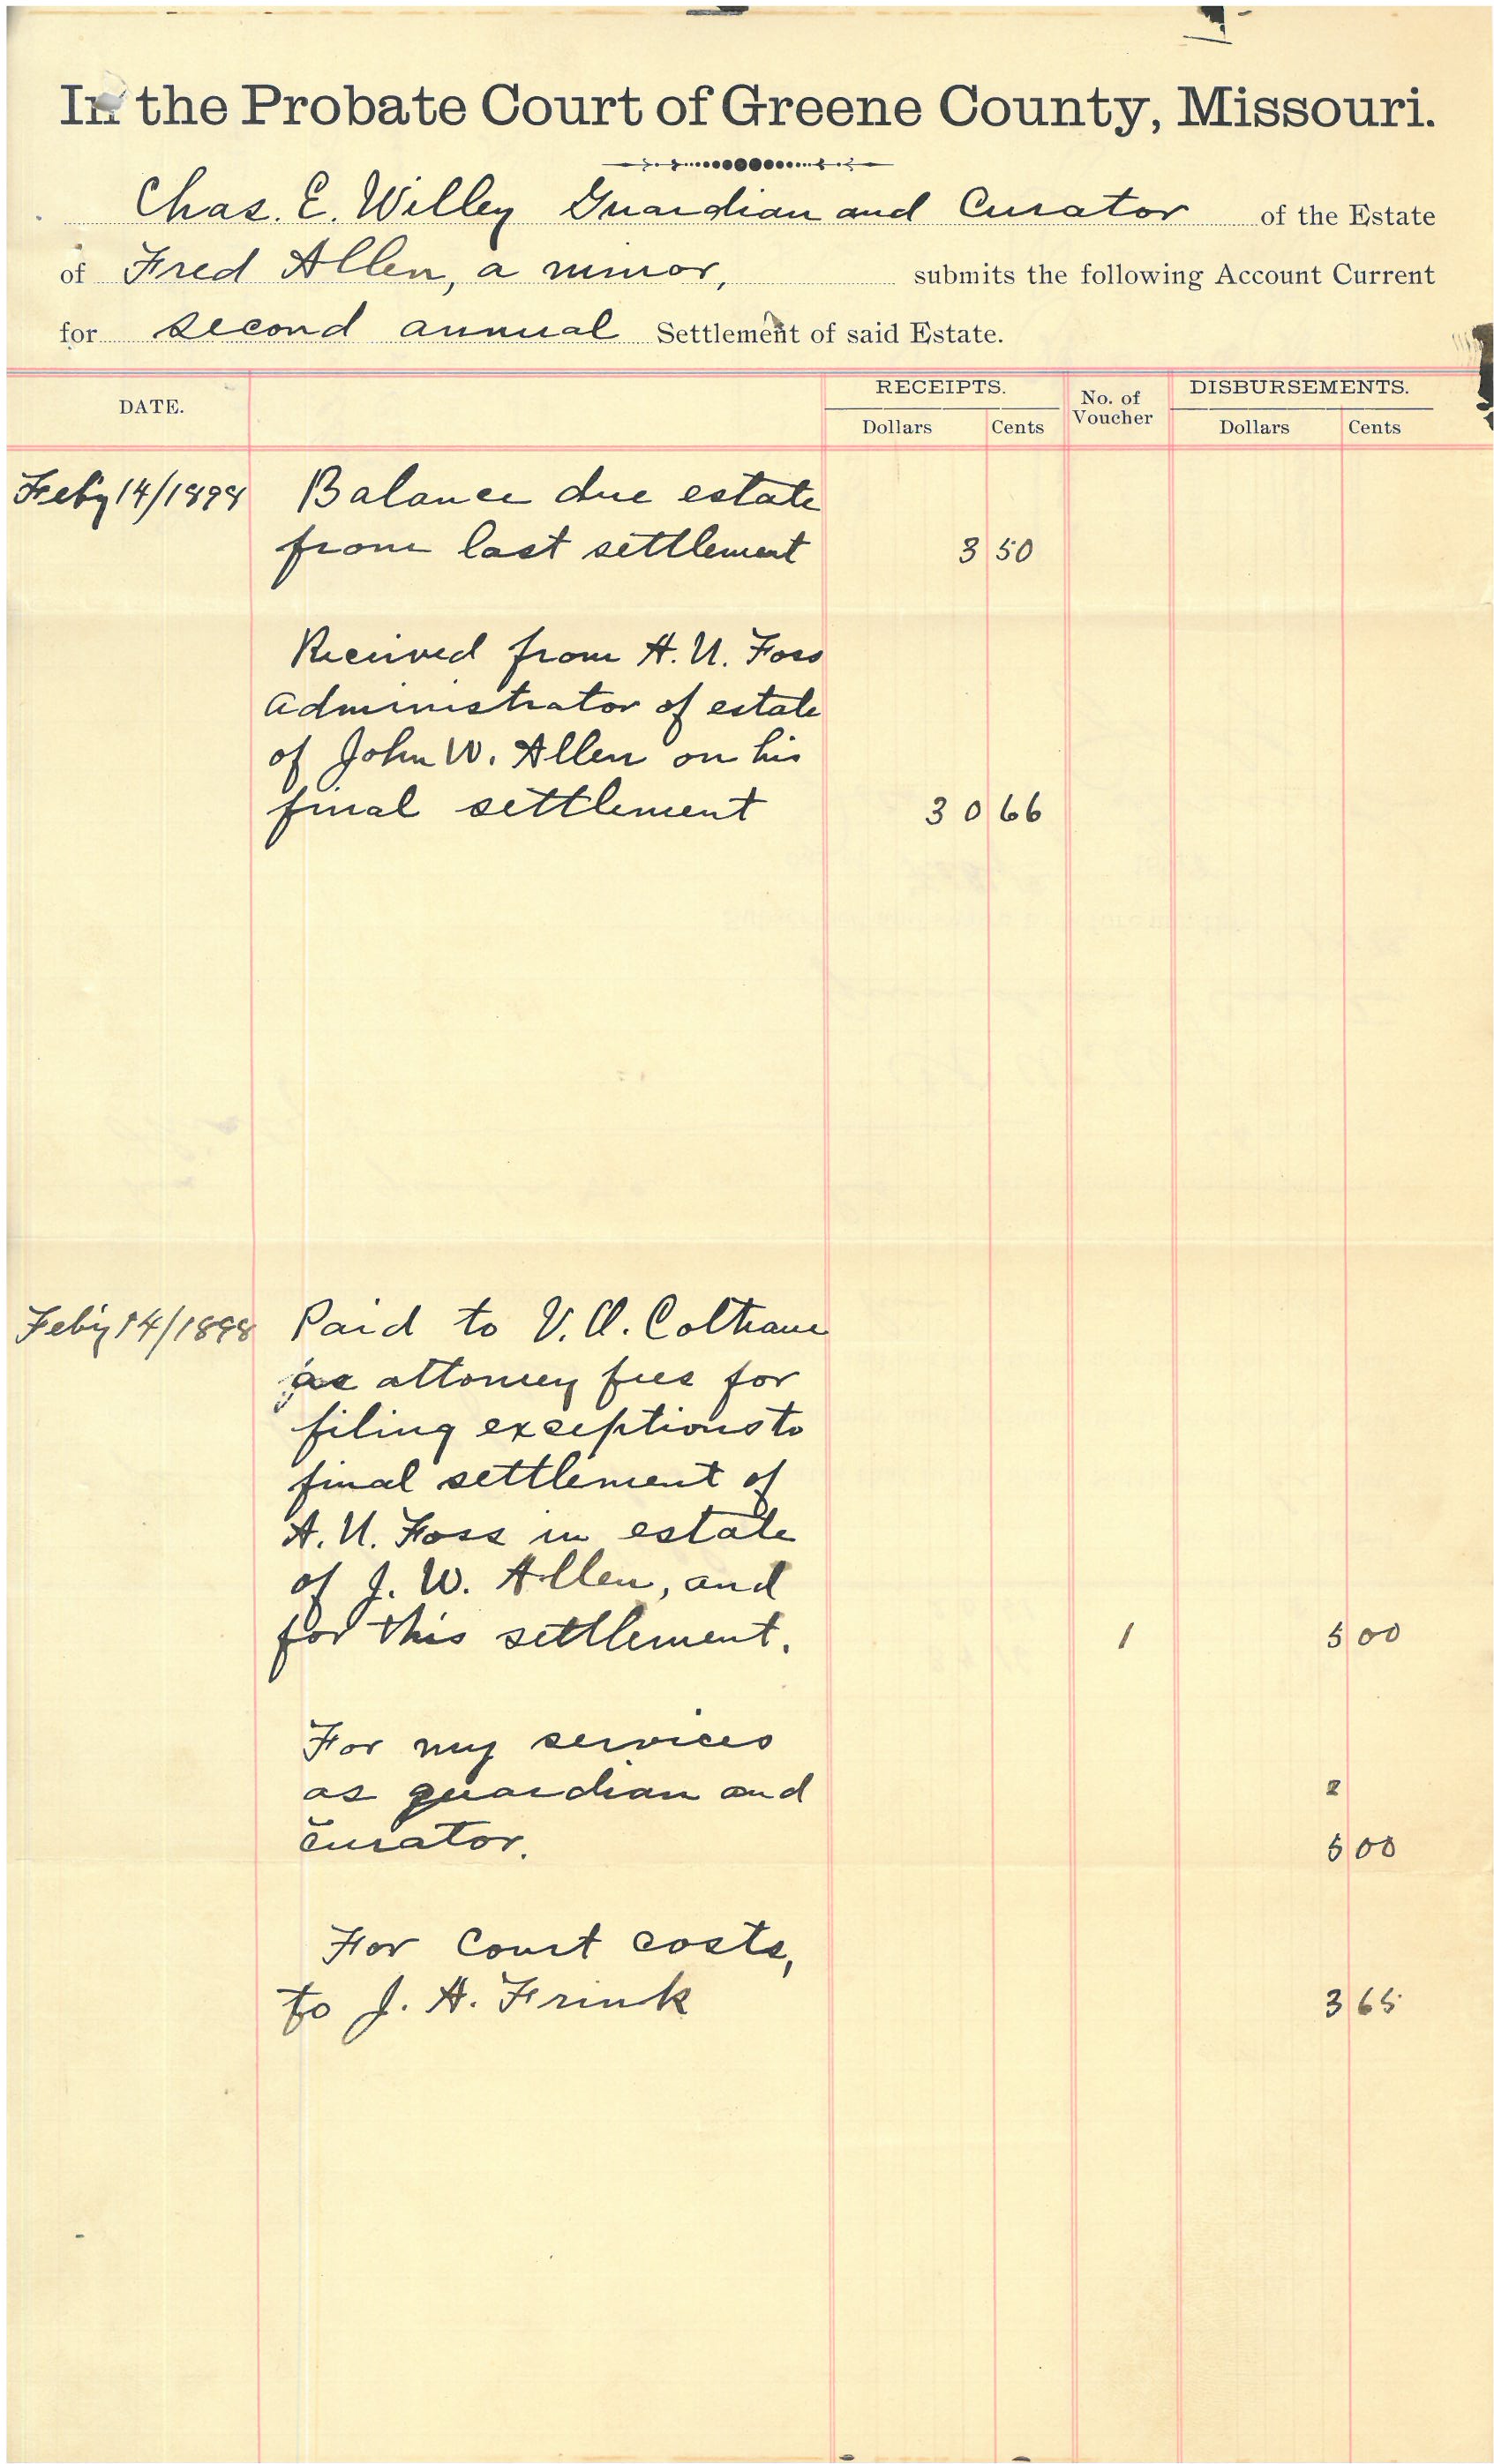 In the Probate Court of Greene County, Missouri.
Chas. E. Willey Guardian and Curator of the Estate
of Fred Allen, a minor, submits the following Account Current
for second annual Settlement of said Estate.
DATE. RECEIPTS. No. of Voucher DISBURSEMENTS.
Dollars Cents Dollars Cents
Feby 14/1898 Balance due estate
from last settlement 3 50
Received from A. U. Foss
administrator of estate
of John W. Allen on his
final settlement 30 66
Feby 14/1898 Paid to V. O. Coltrane
as attorney fees for
filing exceptions to
final settlement of
A. U. Foss in estate
of J. W. Allen, and
for this settlement. 1 5 00
For my services
as guardian and 2
curator. 5 00
For Court costs,
to J. H. Frink 3 65